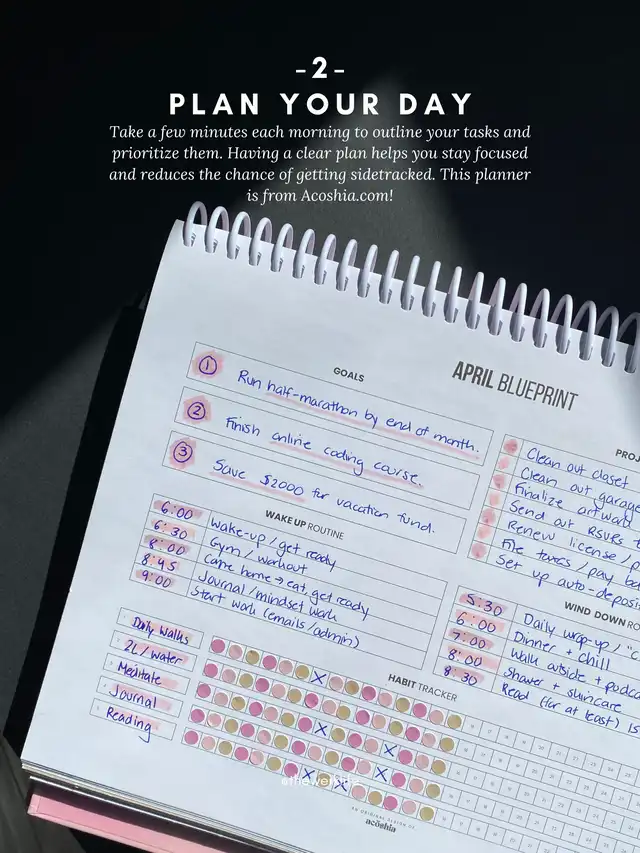 -2-
PLAN YOUR DAY
Take a few minutes each morning to outline your tasks and
prioritize them. Having a clear plan helps you stay focused
and reduces the chance of getting sidetracked. This planner
is from Acoshia.com!
APRIL BLUEPRINT
GOALS
1 Run half-marathon by end of month.
2 Finish online coding course.
3 Save $2000 for vacation fund.
PROJ
Clean out closet
Clean out garage
Finalize artwork
Send out RSVPs
Renew license /
File taxes / pay
Set up auto-deposi
WAKE UP ROUTINE
6:00 wake-up / get ready
6:30 Gym / workout
8:00 Came home → eat, get ready
8:45 Journal / mindset work
9:00 Start work (emails / admin)
WIND DOWN RO
5:30 Daily wrap-up /
6:00 Dinner + chill
7:00 Walk outside + podca
8:00 Shower + skincare
8:30 Read (for at least) 15
HABIT TRACKER
Daily Walks
2L / water
Meditate
Journal
Reading
AN ORIGINAL DESIGN OF
acōshia